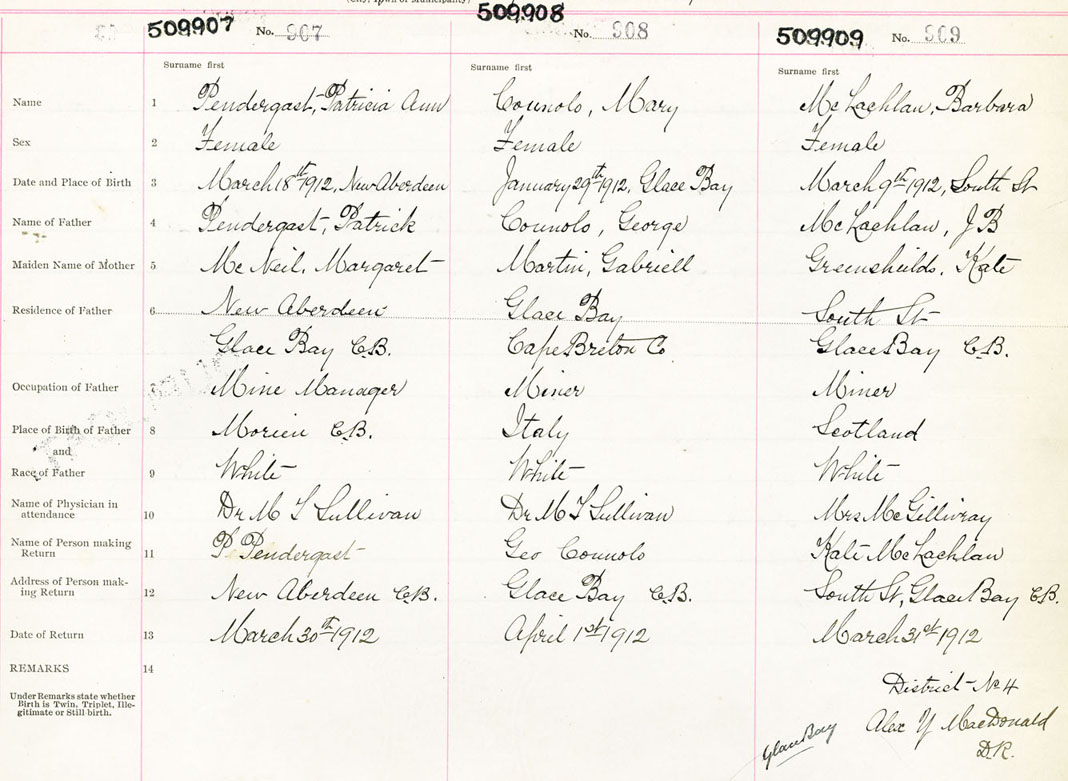 (City, Town or Municipality)
509907 No. 907 509908 No. 908 509909 No. 909
Surname first Surname first Surname first
Name 1 Pendergast, Patricia Ann Counolo, Mary McLachlan, Barbara
Sex 2 Female Female Female
Date and Place of Birth 3 March 18th 1912, New Aberdeen January 29th 1912, Glace Bay March 9th 1912, South St
Name of Father 4 Pendergast, Patrick Counolo, George McLachlan, J B
Maiden Name of Mother 5 McNeil, Margaret Martin, Gabriell Greenshields, Kate
Residence of Father 6 New Aberdeen Glace Bay South St
Glace Bay C.B. Cape Breton Co Glace Bay C.B.
Occupation of Father 7 Mine Manager Miner Miner
Place of Birth of Father 8 Morien C.B. Italy Scotland
and
Race of Father 9 White White White
Name of Physician in
attendance 10 Dr M T Sullivan Dr M T Sullivan Mrs McGillivray
Name of Person making
Return 11 P Pendergast Geo Counolo Kate McLachlan
Address of Person mak-
ing Return 12 New Aberdeen C.B. Glace Bay C.B. South St, Glace Bay C.B.
Date of Return 13 March 30th 1912 April 1st 1912 March 31st 1912
REMARKS 14
Under Remarks state whether
Birth is Twin, Triplet, Ille-
gitimate or Still-birth.
District No 4
Alex Y MacDonald
D.R.
Glace Bay